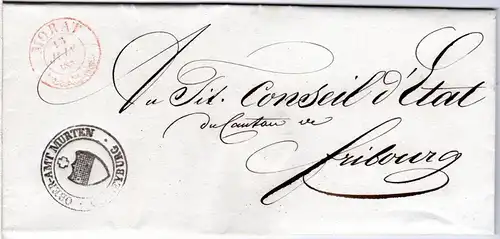 MORAT
Au Tit. Conseil d'Etat
du Canton de
fribourg
OBER-AMT MURTEN